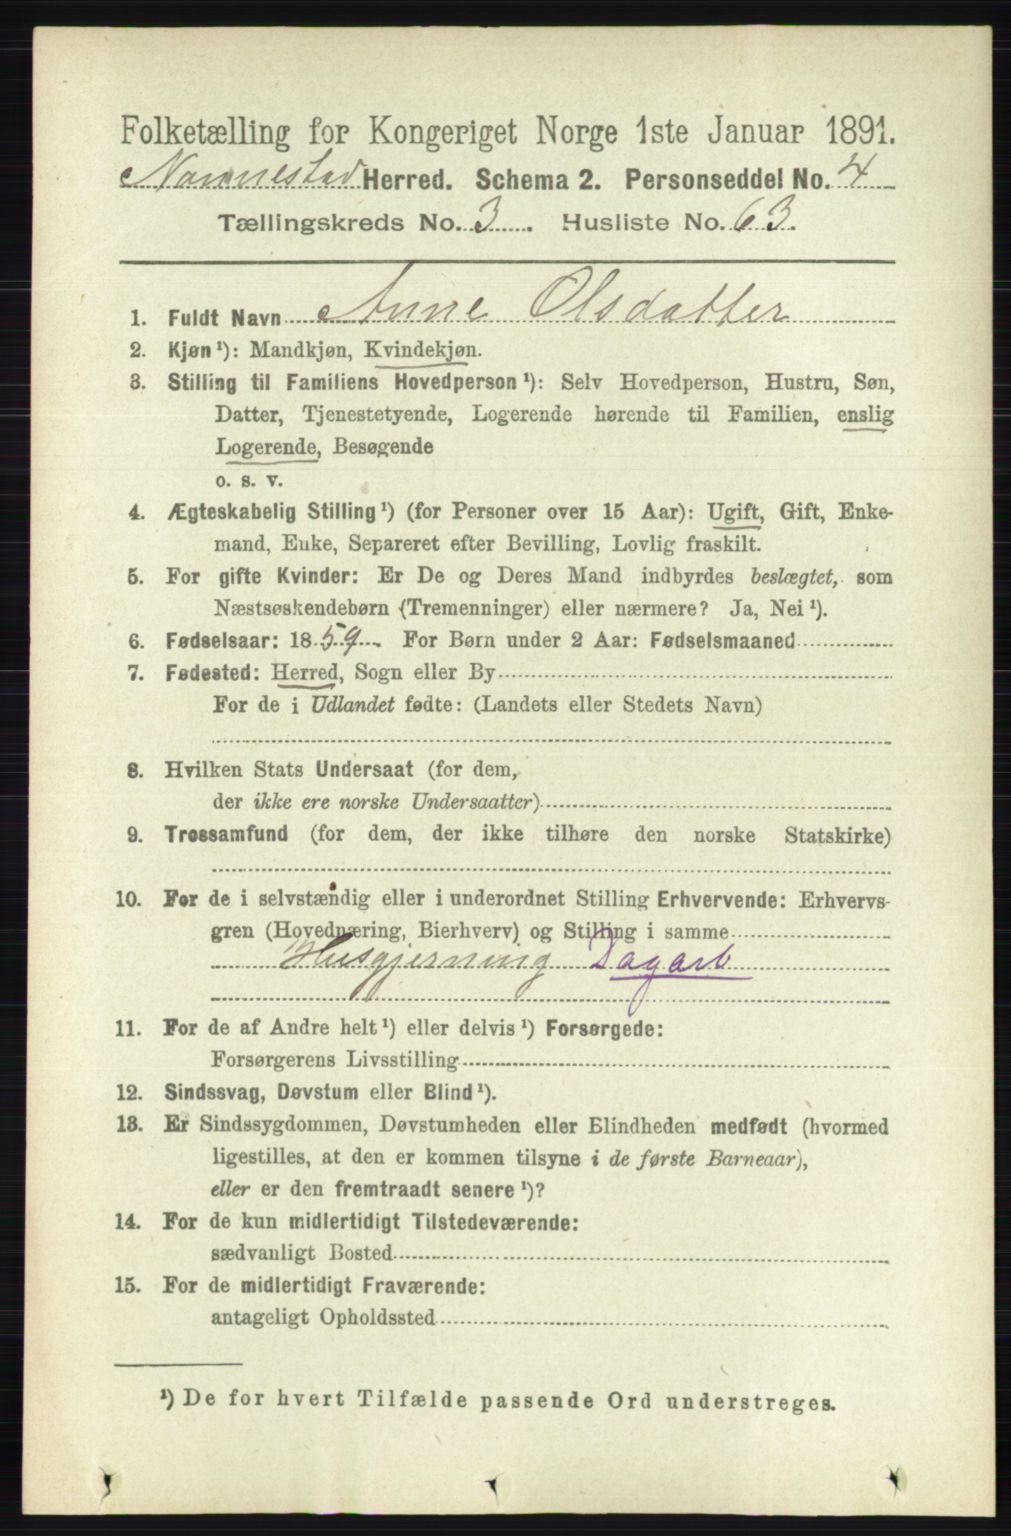 Folketælling for Kongeriget Norge 1ste Januar 1891.
Nannestad Herred. Schema 2. Personseddel No. 4
Tællingskreds No. 3. Husliste No. 63.
1. Fuldt Navn Anne Olsdatter
2. Kjøn¹): Mandkjøn, Kvindekjøn.
3. Stilling til Familiens Hovedperson¹): Selv Hovedperson, Hustru, Søn,
Datter, Tjenestetyende, Logerende hørende til Familien, enslig
Logerende, Besøgende
o. s. v.
4. Ægteskabelig Stilling¹) (for Personer over 15 Aar): Ugift, Gift, Enke-
mand, Enke, Separeret efter Bevilling, Lovlig fraskilt.
5. For gifte Kvinder: Er De og Deres Mand indbyrdes beslægtet, som
Næstsøskendebørn (Tremenninger) eller nærmere? Ja, Nei¹).
6. Fødselsaar: 1859. For Børn under 2 Aar: Fødselsmaaned
7. Fødested: Herred, Sogn eller By
For de i Udlandet fødte: (Landets eller Stedets Navn)
8. Hvilken Stats Undersaat (for dem,
der ikke ere norske Undersaatter)
9. Trossamfund (for dem, der ikke tilhøre den norske Statskirke)
10. For de i selvstændig eller i underordnet Stilling Erhvervende: Erhvervs-
gren (Hovednæring, Bierhverv) og Stilling i samme
Husgjerning Dagarb
11. For de af Andre helt¹) eller delvis¹) Forsørgede:
Forsørgerens Livsstilling
12. Sindssvag, Døvstum eller Blind¹).
13. Er Sindssygdommen, Døvstumheden eller Blindheden medfødt (hvormed
ligestilles, at den er kommen tilsyne i de første Barneaar),
eller er den fremtraadt senere¹)?
14. For de kun midlertidigt Tilstedeværende:
sædvanligt Bosted
15. For de midlertidigt Fraværende:
antageligt Opholdssted
¹) De for hvert Tilfælde passende Ord understreges.